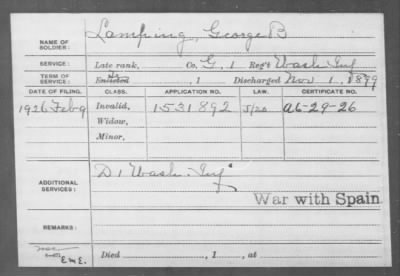 NAME OF SOLDIER: Lamping, George B
SERVICE: Late rank, Co. G, 1 Reg't Wash Inf
TERM OF SERVICE: Enlisted , 1 Discharged Nov 1, 1899
DATE OF FILING. CLASS. APPLICATION NO. LAW. CERTIFICATE NO.
1926 Feb 9 Invalid, 1531892 J/20 A6-29-26
Widow,
Minor,
ADDITIONAL SERVICES: D, 1 Wash. Inf
War with Spain
REMARKS:
Died , 1 , at
E.M.E.